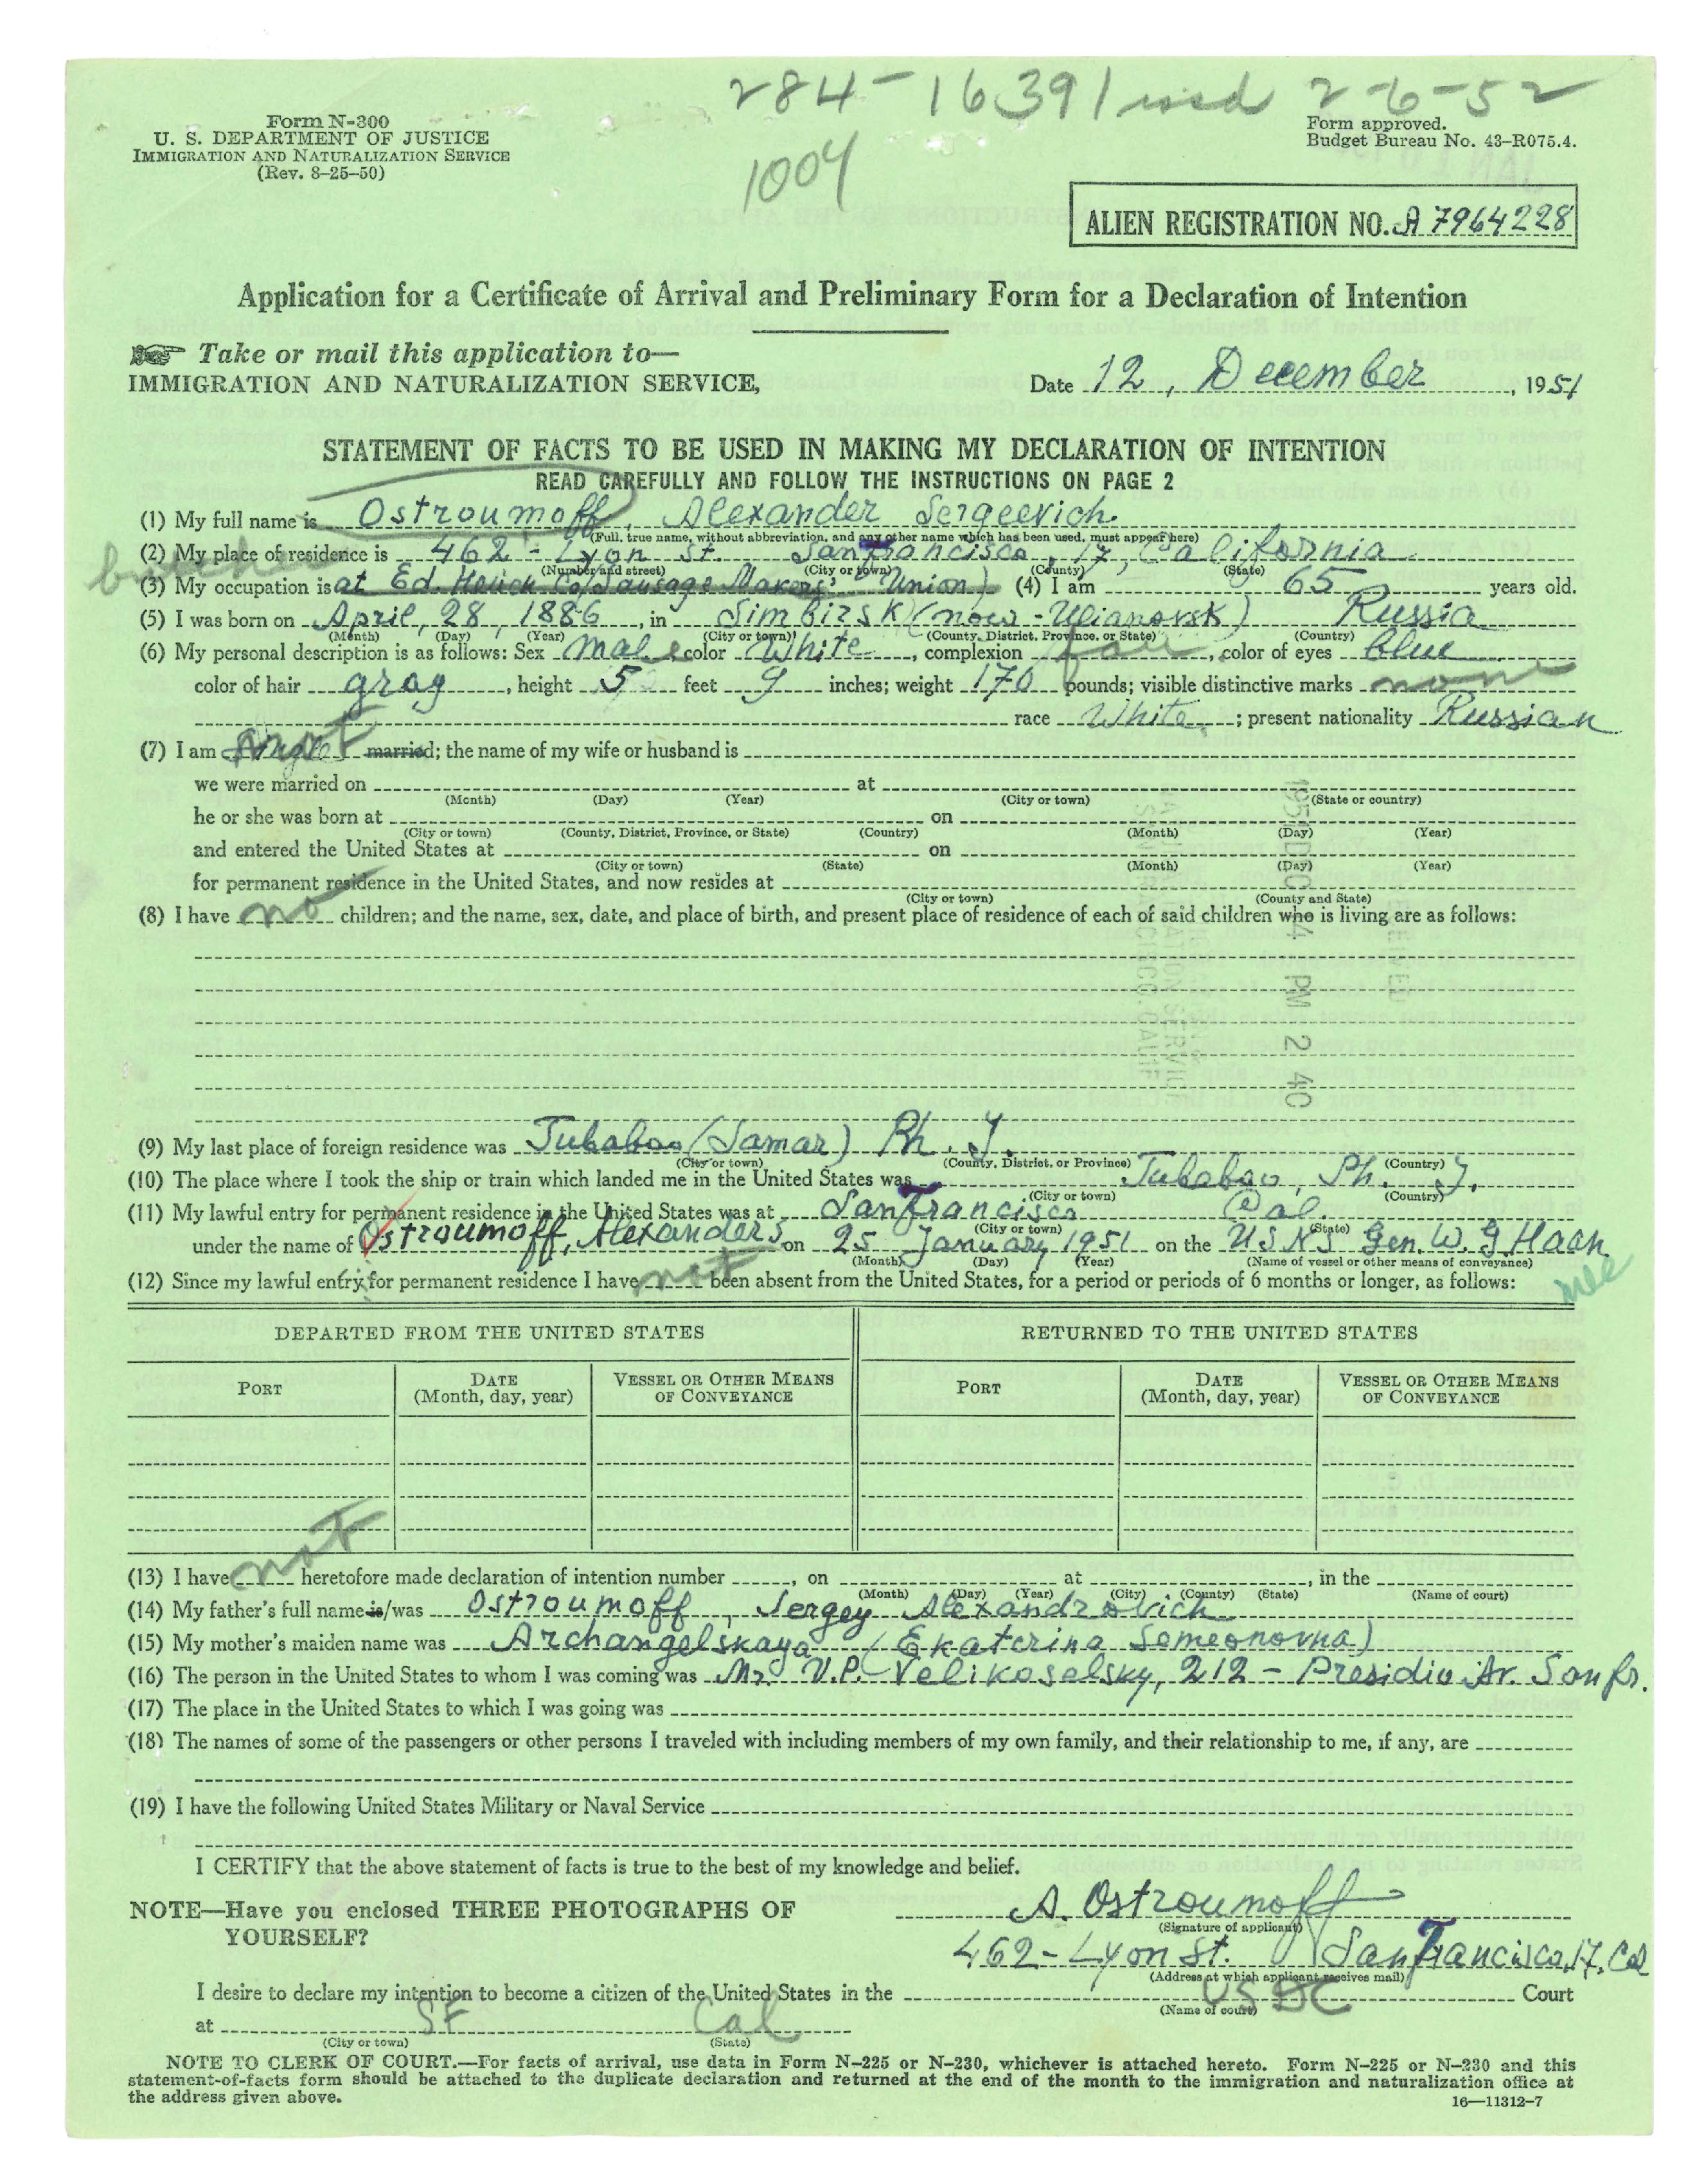 284-16391 issd 2-6-52
Form N-300
U. S. DEPARTMENT OF JUSTICE
IMMIGRATION AND NATURALIZATION SERVICE
(Rev. 8-25-50)
1004
Form approved.
Budget Bureau No. 43-R075.4.
ALIEN REGISTRATION NO. A 7964228
Application for a Certificate of Arrival and Preliminary Form for a Declaration of Intention
Take or mail this application to—
IMMIGRATION AND NATURALIZATION SERVICE,
Date 12, December, 1951
STATEMENT OF FACTS TO BE USED IN MAKING MY DECLARATION OF INTENTION
READ CAREFULLY AND FOLLOW THE INSTRUCTIONS ON PAGE 2
(1) My full name is Ostroumoff, Alexander Sergeevich.
(Full, true name, without abbreviation, and any other name which has been used, must appear here)
(2) My place of residence is 462 - Lyon St. San Francisco, 17, California
(Number and street) (City or town) (County) (State)
(3) My occupation is at Ed. Heuck Co/Sausage Makers' Union) (4) I am 65 years old.
(5) I was born on April, 28, 1886, in Simbirsk (now-Ulianovsk) Russia
(Month) (Day) (Year) (City or town) (County, District, Province, or State) (Country)
(6) My personal description is as follows: Sex male color White, complexion fair, color of eyes blue
color of hair gray, height 5 feet 9 inches; weight 170 pounds; visible distinctive marks none
race White; present nationality Russian
(7) I am single not married; the name of my wife or husband is
we were married on at
(Month) (Day) (Year) (City or town) (State or country)
he or she was born at on
(City or town) (County, District, Province, or State) (Country) (Month) (Day) (Year)
and entered the United States at on
(City or town) (State) (Month) (Day) (Year)
for permanent residence in the United States, and now resides at
(City or town) (County and State)
(8) I have no children; and the name, sex, date, and place of birth, and present place of residence of each of said children who is living are as follows:
PM 2 40
(9) My last place of foreign residence was Tubabao (Samar) Ph. I.
(City or town) (County, District, or Province) (Country)
(10) The place where I took the ship or train which landed me in the United States was Tubabao, Ph. I.
(City or town) (Country)
(11) My lawful entry for permanent residence in the United States was at San Francisco Cal.
(City or town) (State)
under the name of Ostroumoff, Alexander S. on 25 January 1951 on the USNS Gen. W. G. Haan
(Month) (Day) (Year) (Name of vessel or other means of conveyance)
(12) Since my lawful entry for permanent residence I have not been absent from the United States, for a period or periods of 6 months or longer, as follows:
DEPARTED FROM THE UNITED STATES RETURNED TO THE UNITED STATES
PORT DATE (Month, day, year) VESSEL OR OTHER MEANS OF CONVEYANCE PORT DATE (Month, day, year) VESSEL OR OTHER MEANS OF CONVEYANCE
(13) I have not heretofore made declaration of intention number, on at, in the
(Month) (Day) (Year) (City) (County) (State) (Name of court)
(14) My father's full name is/was Ostroumoff, Sergey Alexandrovich
(15) My mother's maiden name was Archangelskaya (Ekaterina Semeonovna)
(16) The person in the United States to whom I was coming was Mr. V.P. Velikoselsky, 212 - Presidio Av. San fr.
(17) The place in the United States to which I was going was
(18) The names of some of the passengers or other persons I traveled with including members of my own family, and their relationship to me, if any, are
(19) I have the following United States Military or Naval Service
I CERTIFY that the above statement of facts is true to the best of my knowledge and belief.
NOTE—Have you enclosed THREE PHOTOGRAPHS OF YOURSELF?
A. Ostroumoff
(Signature of applicant)
462 - Lyon St. San Francisco, 17, Cal
(Address at which applicant receives mail)
I desire to declare my intention to become a citizen of the United States in the US DC Court
(Name of court)
at SF Cal
(City or town) (State)
NOTE TO CLERK OF COURT.—For facts of arrival, use data in Form N-225 or N-230, whichever is attached hereto. Form N-225 or N-230 and this
statement-of-facts form should be attached to the duplicate declaration and returned at the end of the month to the immigration and naturalization office at
the address given above.
16—11312-7